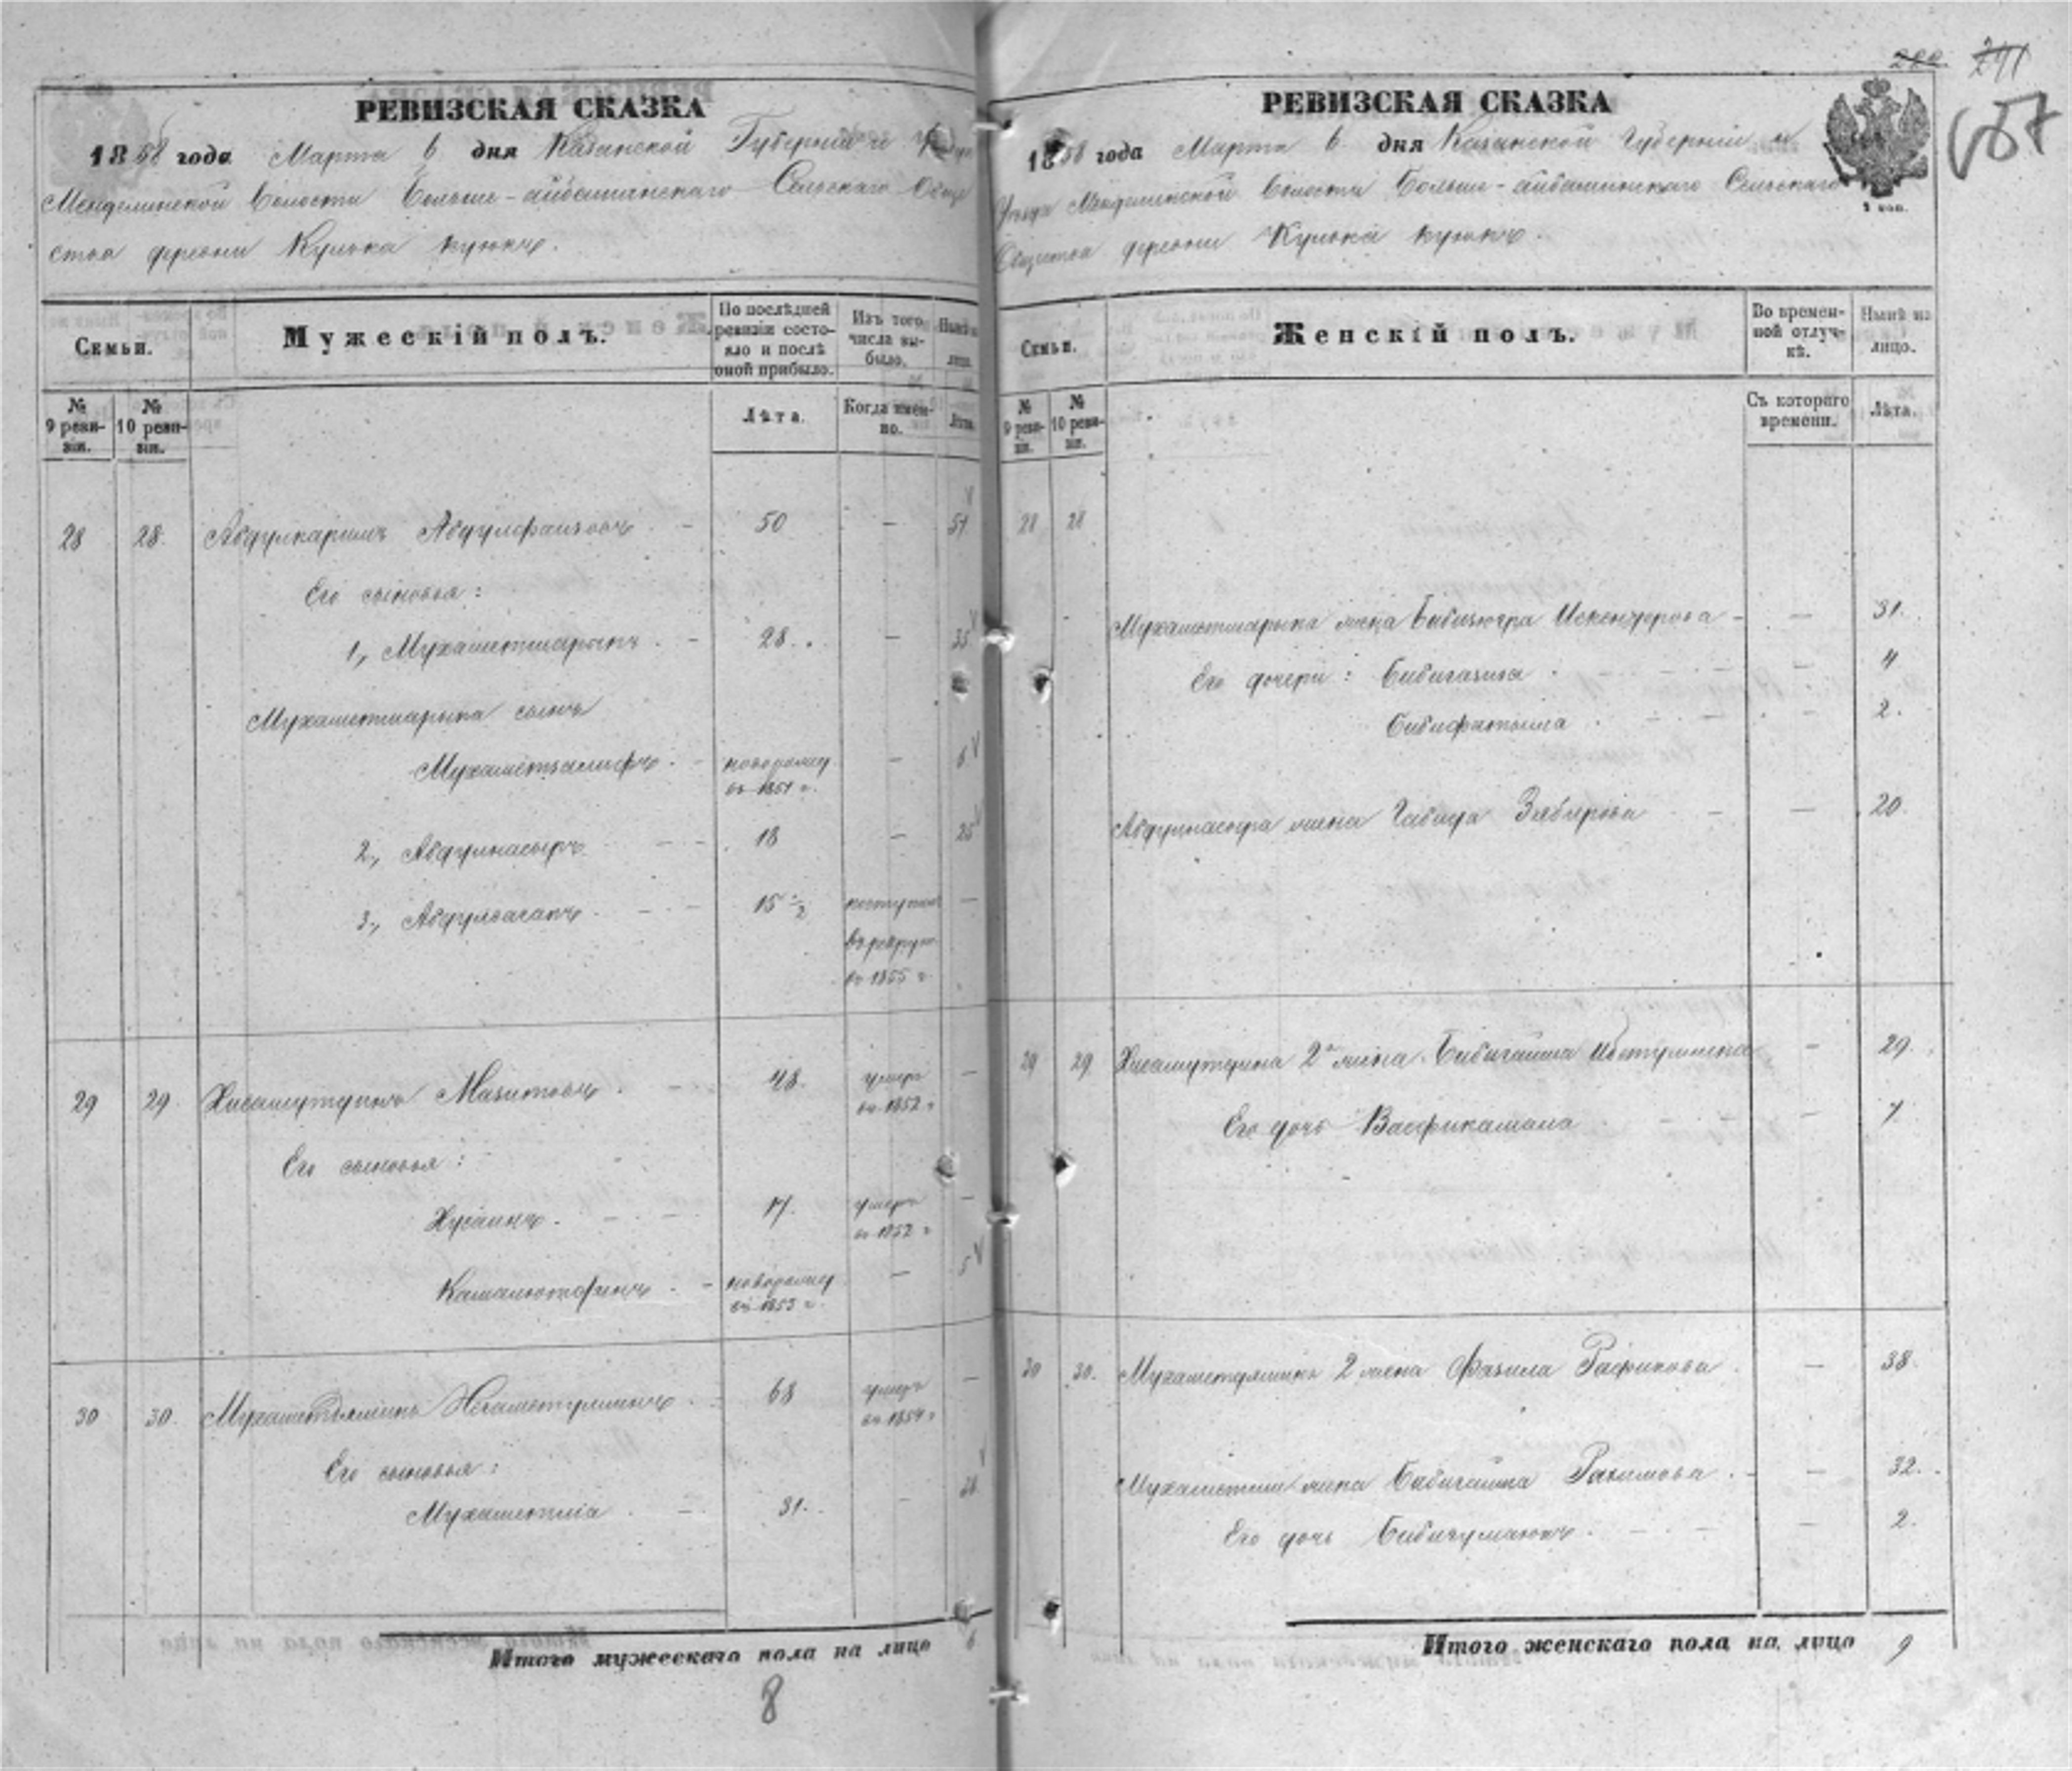 РЕВИЗСКАЯ СКАЗКА
1858 года Марта 6 дня Казанской Губернии и Уезда
Менделинской волости Больше-айбашинскаго Сельскаго Обще
ства деревни Кулька куюкъ.
Семьи.
Мужескій полъ.
По послѣдней ревизіи состояло и послѣ оной прибыло.
Изъ того числа выбыло.
Нынѣ на лицо.
№ 9 ревизіи.
№ 10 ревизіи.
Лѣта.
Когда именно.
Лѣта.
28 28. Абдулкаримъ Абдулфаизовъ 50 — 51
Его сыновья:
1, Мухаметшарыпъ. 28. — 35
Мухаметшарыпа сынъ
Мухаметзалифъ. новорожд въ 1851 г. — 6
2, Абдулнасыръ 18 — 25
3, Абдулвагапъ. 15 1/2 поступилъ въ рекрут въ 1855 г. —
29 29. Хисамутдинъ Мазитовъ. 48. умеръ въ 1852 г —
Его сыновья:
Хусаинъ. 17. умеръ въ 1852 г —
Камалютдинъ. новорожд въ 1853 г. — 5
30 30. Мухаметъяминъ Негаметуллинъ 68 умеръ въ 1854 г —
Его сыновья:
Мухаметша 31. —
Итого мужескаго пола на лицо 6
8
222 241
657
РЕВИЗСКАЯ СКАЗКА
1858 года Марта 6 дня Казанской Губернии и
Уезда Менделинской волости Больше-айбашинскаго Сельскаго
Общества деревни Кулька куюкъ.
1 коп.
Семьи.
Женскій полъ.
Во временной отлучкѣ.
Нынѣ на лицо.
№ 9 ревизіи.
№ 10 ревизіи.
Съ котораго времени.
Лѣта.
28 28
Мухаметшарыпа жена Бибизюгра Искендерова — 31.
Его дочери: Бибигазиза — 4
Бибифатыма — 2.
Абдулнасыра жена — 20.
29 29 Хисамутдина 2я жена Бибигайша — 29.
Его дочь Васфикамала — 7
30 30. Мухаметяминъ 2 жена Фазила Рафикова — 38.
Мухаметши жена Бибигайша Рахимова. — 32.
Его дочь — 2.
Итого женскаго пола на лицо 9